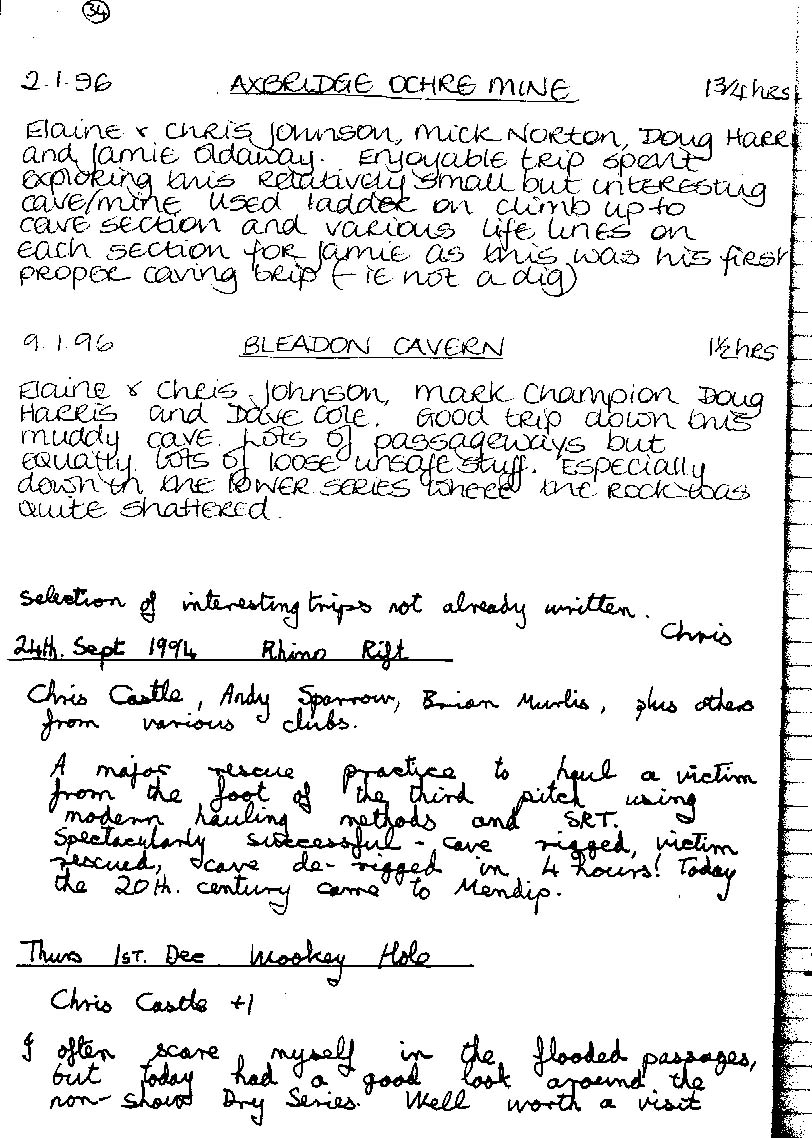 34
2.1.96 AXBRIDGE OCHRE MINE 1 3/4 hrs
Elaine & Chris Johnson, Mick Norton, Doug Harri
and Jamie Adaway. Enjoyable trip spent
exploring this relatively small but interesting
cave/mine used ladder on climb up to
cave section and various life lines on
each section for Jamie as this was his first
proper caving trip (- ie not a dig)
9.1.96 BLEADON CAVERN 1 1/2 hrs
Elaine & Chris Johnson, Mark Champion Doug
Harris and Dave Cole. Good trip down this
muddy cave. Lots of passageways but
equally lots of loose unsafe stuff. Especially
down in the lower series where the rock was
quite shattered.
Selection of interesting trips not already written.
Chris
24th. Sept 1994 Rhino Rift
Chris Castle, Andy Sparrow, Brian Murlis, plus others
from various clubs.
A major rescue practice to haul a victim
from the foot of the third pitch using
modern hauling methods and SRT.
Spectacularly successful - cave rigged, victim
rescued, cave de-rigged in 4 hours! Today
the 20th. century came to Mendip.
Thurs 1st. Dec Wookey Hole
Chris Castle +1
I often scare myself in the flooded passages,
but today had a good look around the
non-show Dry Series. Well worth a visit